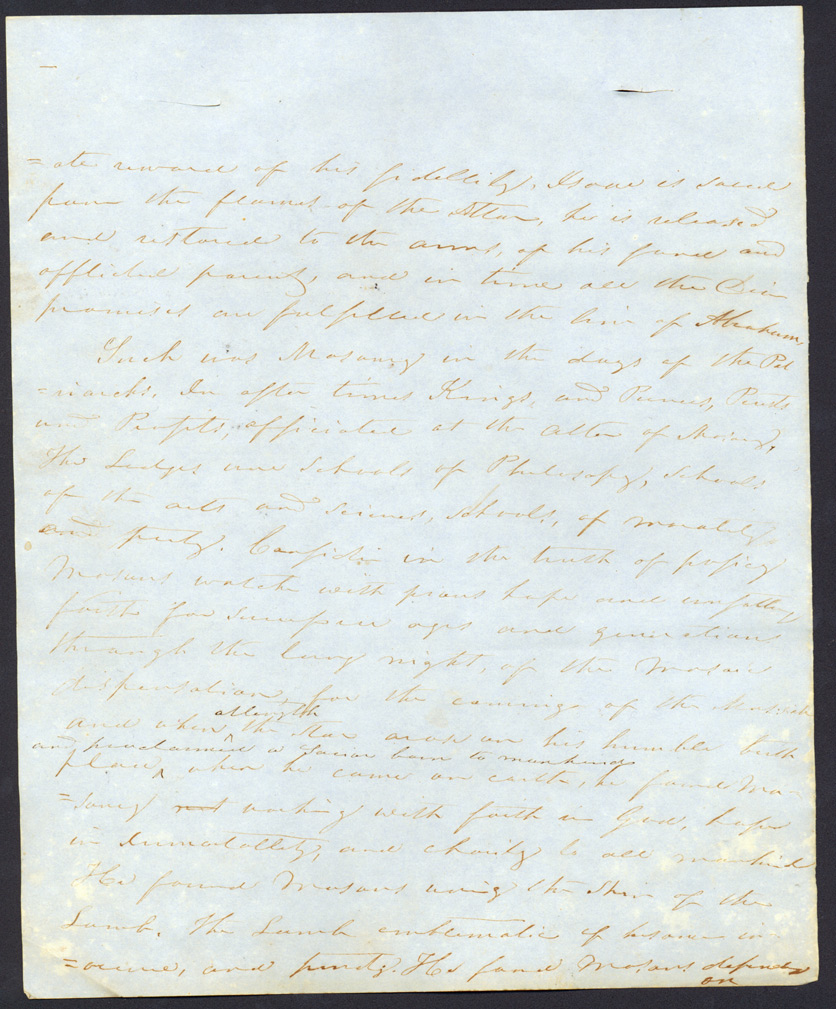 =ate reward of his fidellity, Isaac is saved
from the flames of the Altar, he is released
and restored to the arms, of his fond and
afflicted parent, and in time all the
promises are fulfilled in the line of Abraham,
Such was Masonry in the days of the Pat
=riarchs. In after times Kings, and Princes, Priests
and Prophets, officiated at the alter of Masonry,
The Lodges were Schools of Philosophy, Schools
of the arts and sciences, Schools, of morality
and piety. in the truth of
Masons watch with pious hope and
faith for ages and generations
through the long night, of the Mosaic
dispensation, for the comeing of the Messiah
and when atlength the Star arose on his humble birth
place and proclaimed a Savior born to mankind when he came on earth, he found Ma=
=sonry not working with faith in God, hope
in Immotallety, and charity to all mankind
He found Masons useing the Skin of the
Lamb. The Lamb emblematic of in=
=ocence, and purity. He found Masons
on